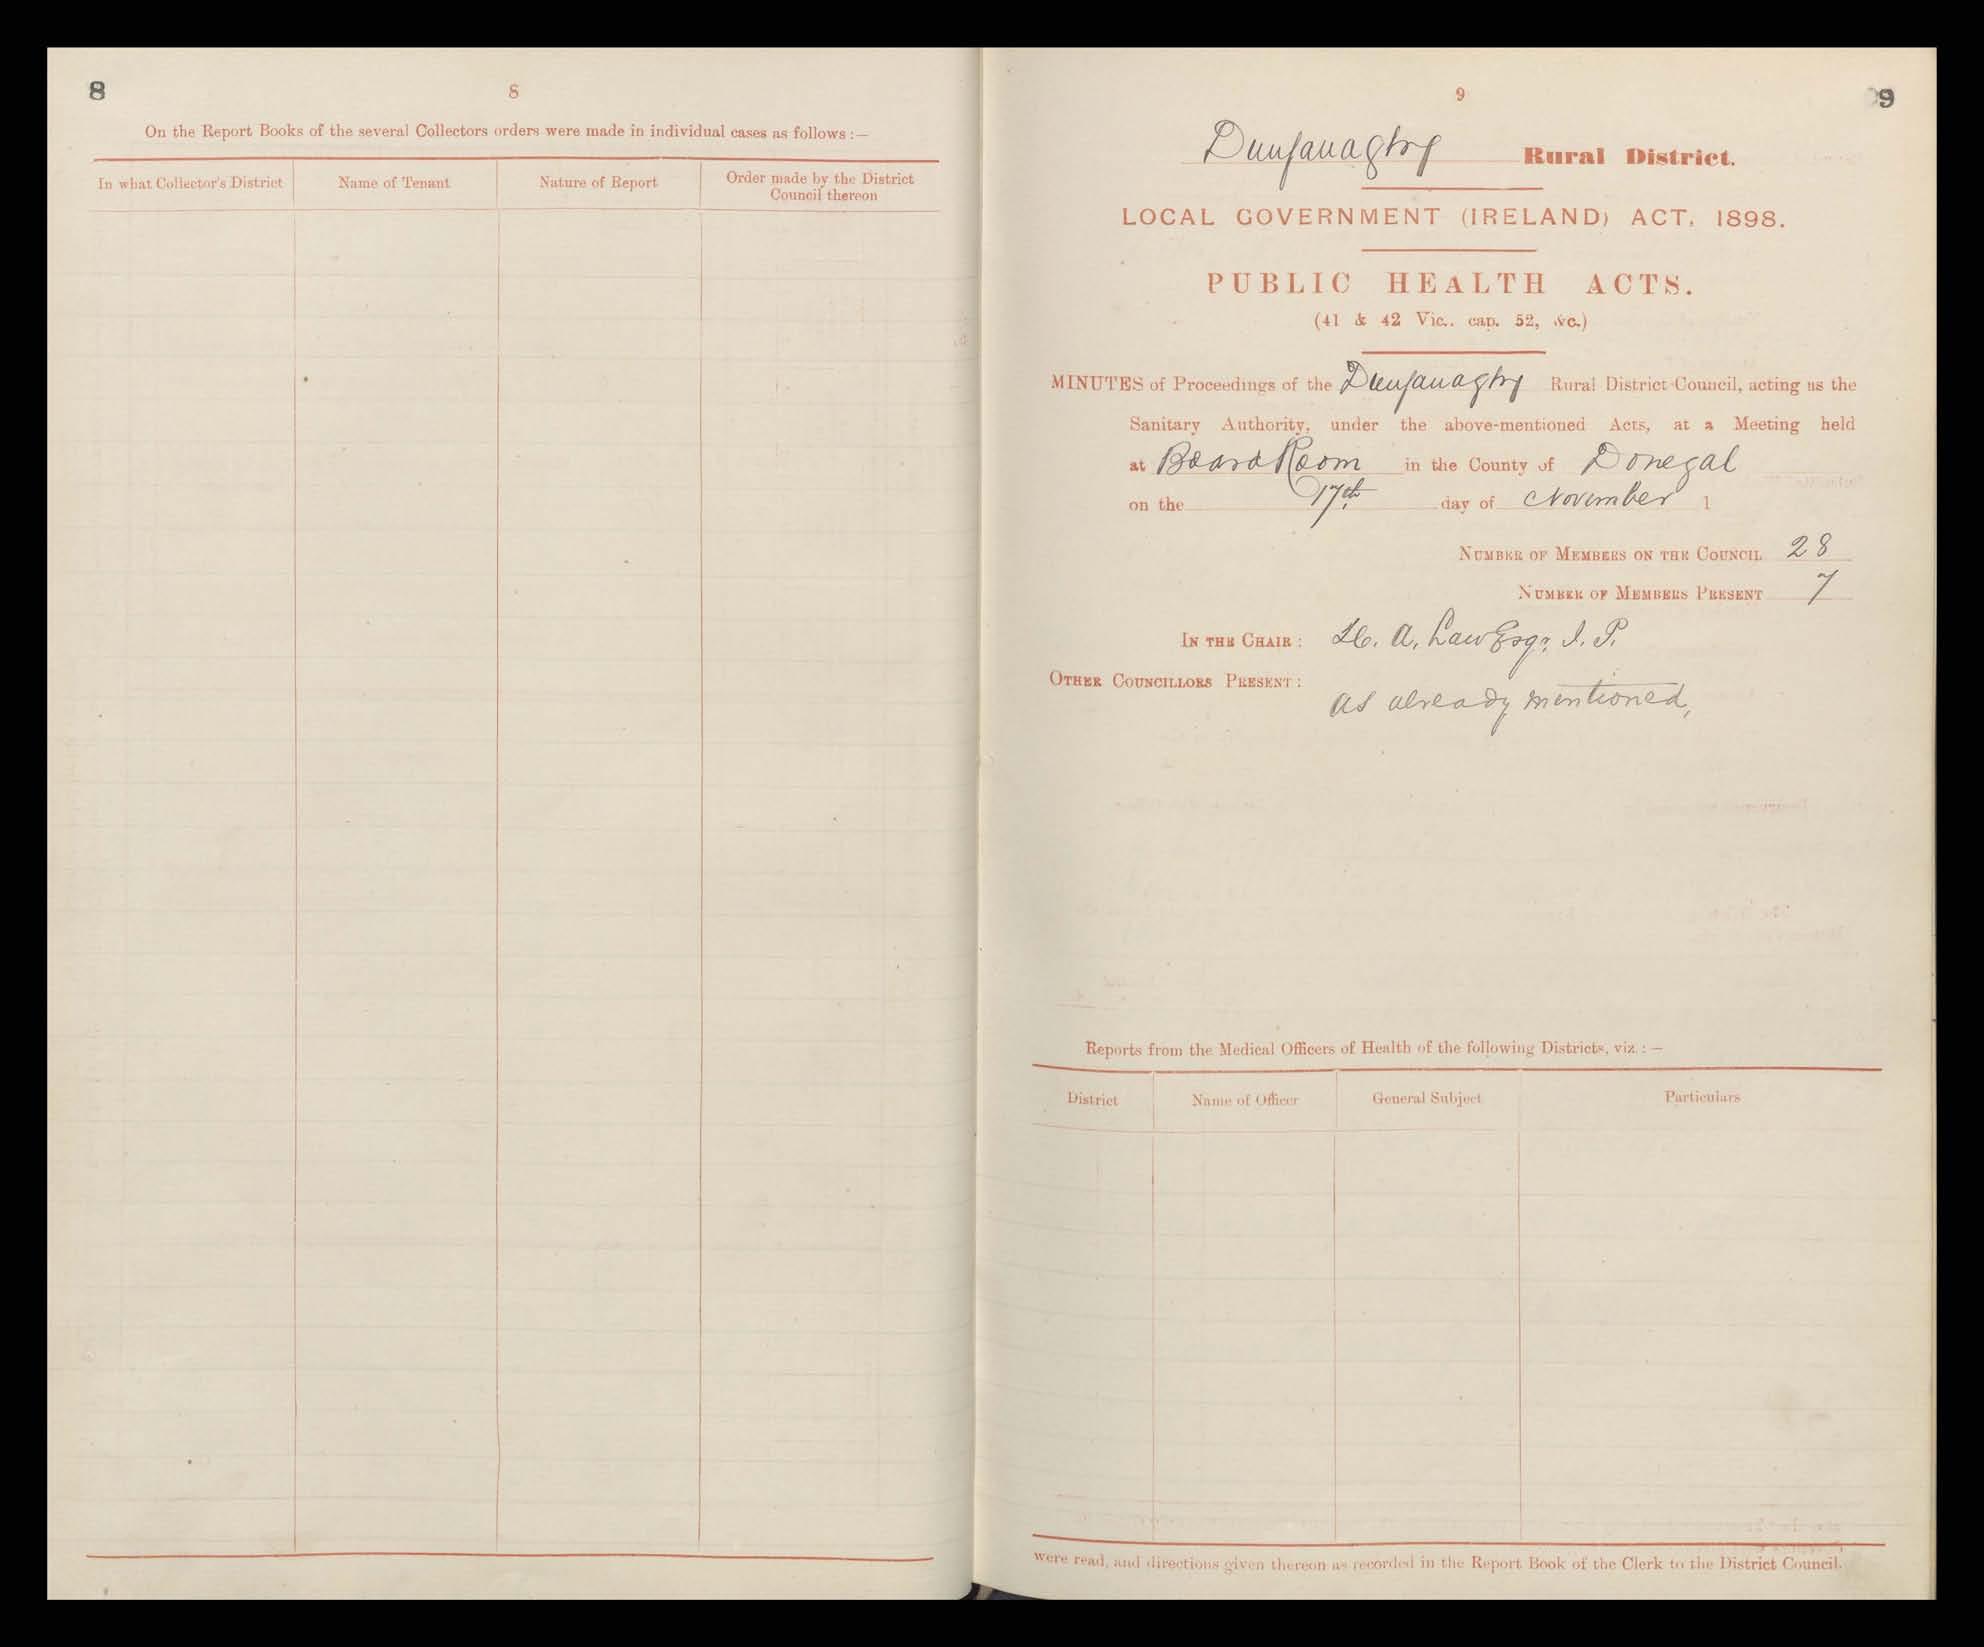 8
8
On the Report Books of the several Collectors orders were made in individual cases as follows :—
In what Collector's District
Name of Tenant
Nature of Report
Order made by the District
Council thereon
9
9
Dunfanaghy Rural District.
LOCAL GOVERNMENT (IRELAND) ACT, 1898.
PUBLIC HEALTH ACTS.
(41 & 42 Vic.. cap. 52, &c.)
MINUTES of Proceedings of the Dunfanaghy Rural District Council, acting as the
Sanitary Authority, under the above-mentioned Acts, at a Meeting held
at Board Room in the County of Donegal
on the 17th day of November 1
NUMBER OF MEMBERS ON THE COUNCIL 28
NUMBER OF MEMBERS PRESENT 7
IN THE CHAIR : H. A. Law Esqr. J. P.
OTHER COUNCILLORS PRESENT :
as already mentioned,
Reports from the Medical Officers of Health of the following Districts, viz. :—
District
Name of Officer
General Subject
Particulars
were read, and directions given thereon as recorded in the Report Book of the Clerk to the District Council.